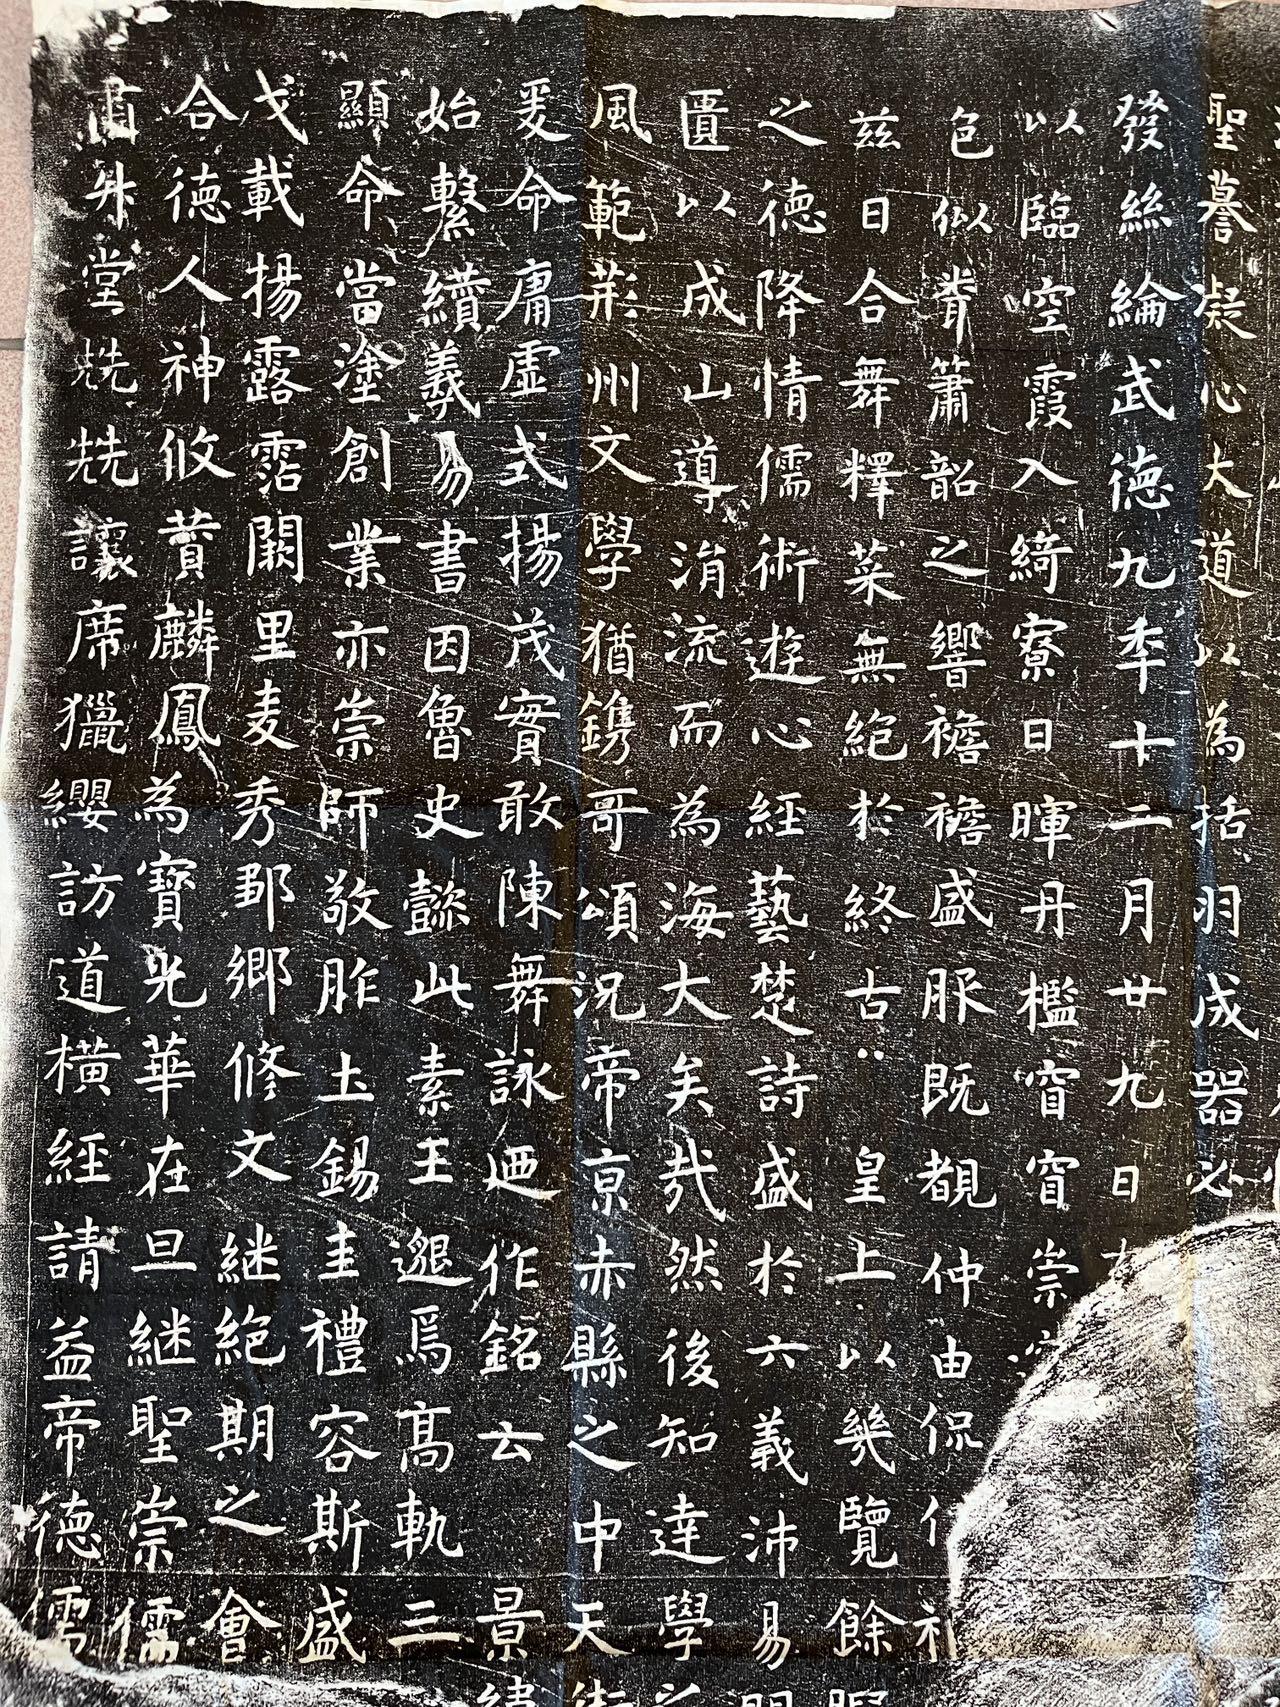 聖蓦凝心大道以為括羽成器必
發絲綸武德九秊十二月廿九日
以臨空霞入綺寮日暉丹檻窅窅崇
色似聳簫韶之響襜襜盛服既覩仲由侃侃
茲日合舞釋菜無絕於終古皇上以幾覽餘暇
之德降情儒術遊心經藝楚詩盛於六義沛易
匱以成山導涓流而為海大矣哉然後知達學之
風範荊州文學猶鐫哥頌況帝京赤縣之中天
爰命庸虛式揚茂實敢陳舞詠迺作銘云景緯
始繫纘羲易書因魯史懿此素王邈焉高軌三
顯命當塗創業亦崇師敬胙土錫圭禮容斯盛
戈載揚露霑闕里麦秀郰鄉修文継絕期之會
合德人神攸贊麟鳳為寶光華在旦継聖崇儒
肅升堂兟兟讓席獵纓訪道橫經請益帝德儒